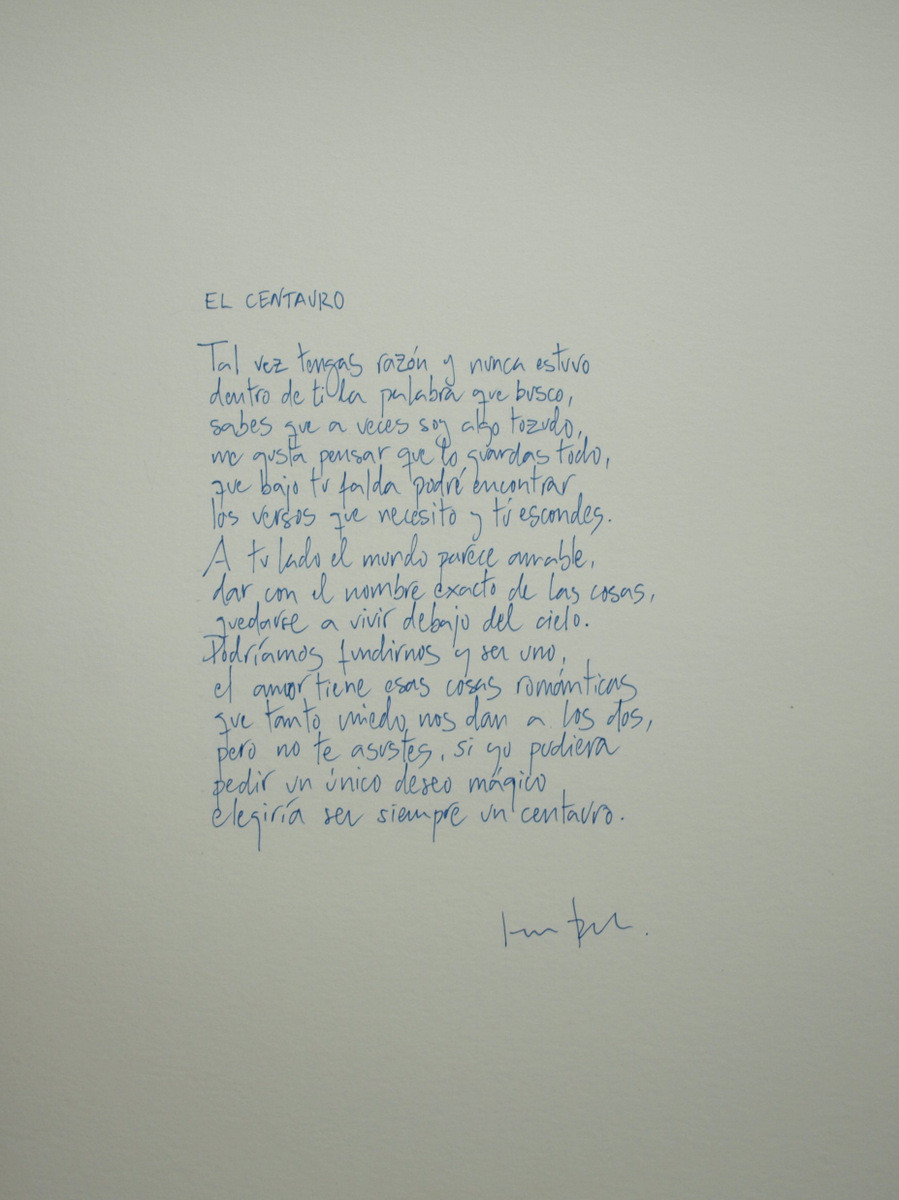 EL CENTAURO
Tal vez tengas razón y nunca estuvo
dentro de ti la palabra que busco,
sabes que a veces soy algo tozudo,
me gusta pensar que lo guardas todo,
que bajo tu falda podré encontrar
los versos que necesito y tú escondes.
A tu lado el mundo parece amable,
dar con el nombre exacto de las cosas,
quedarse a vivir debajo del cielo.
Podríamos fundirnos y ser uno,
el amor tiene esas cosas románticas
que tanto miedo nos dan a los dos,
pero no te asustes, si yo pudiera
pedir un único deseo mágico
elegiría ser siempre un centauro.